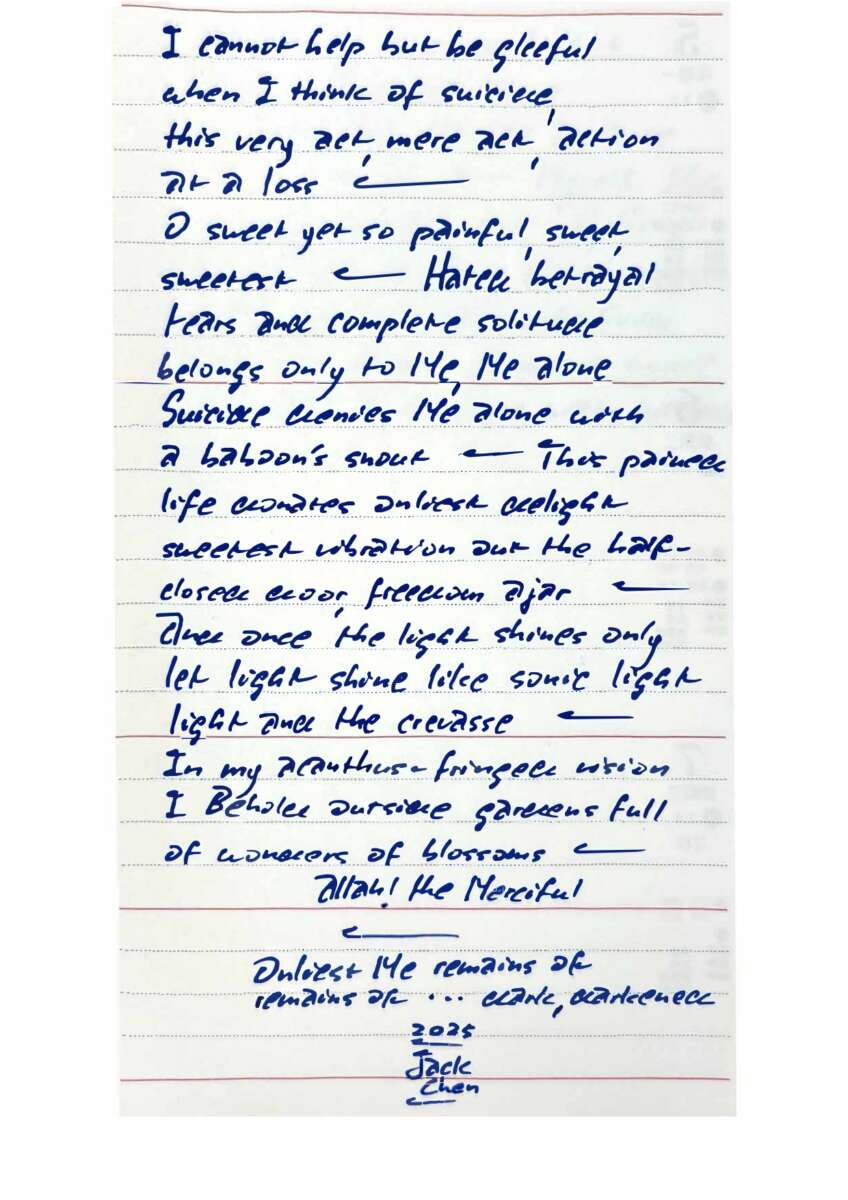 I cannot help but be gleeful
when I think of suicide,
this very act, mere act, action
at a loss ←
O sweet yet so painful, sweet,
sweetest ← Hated betrayal
tears and complete solitude
belongs only to Me, Me alone
Suicide denies Me alone with
a baboon's snout ← This pained
life donates onliest delight
sweetest vibration out the half-
closed door, freedom ajar ←
And once the light shines only
let light shine like sonic light
light and the crevasse ←
In my acanthus-fringed vision
I Behold outside gardens full
of wonders of blossoms ←
Allah! the Merciful
←
Onliest Me remains of
remains of ... dark, darkened
2025
Jack
Chen
←